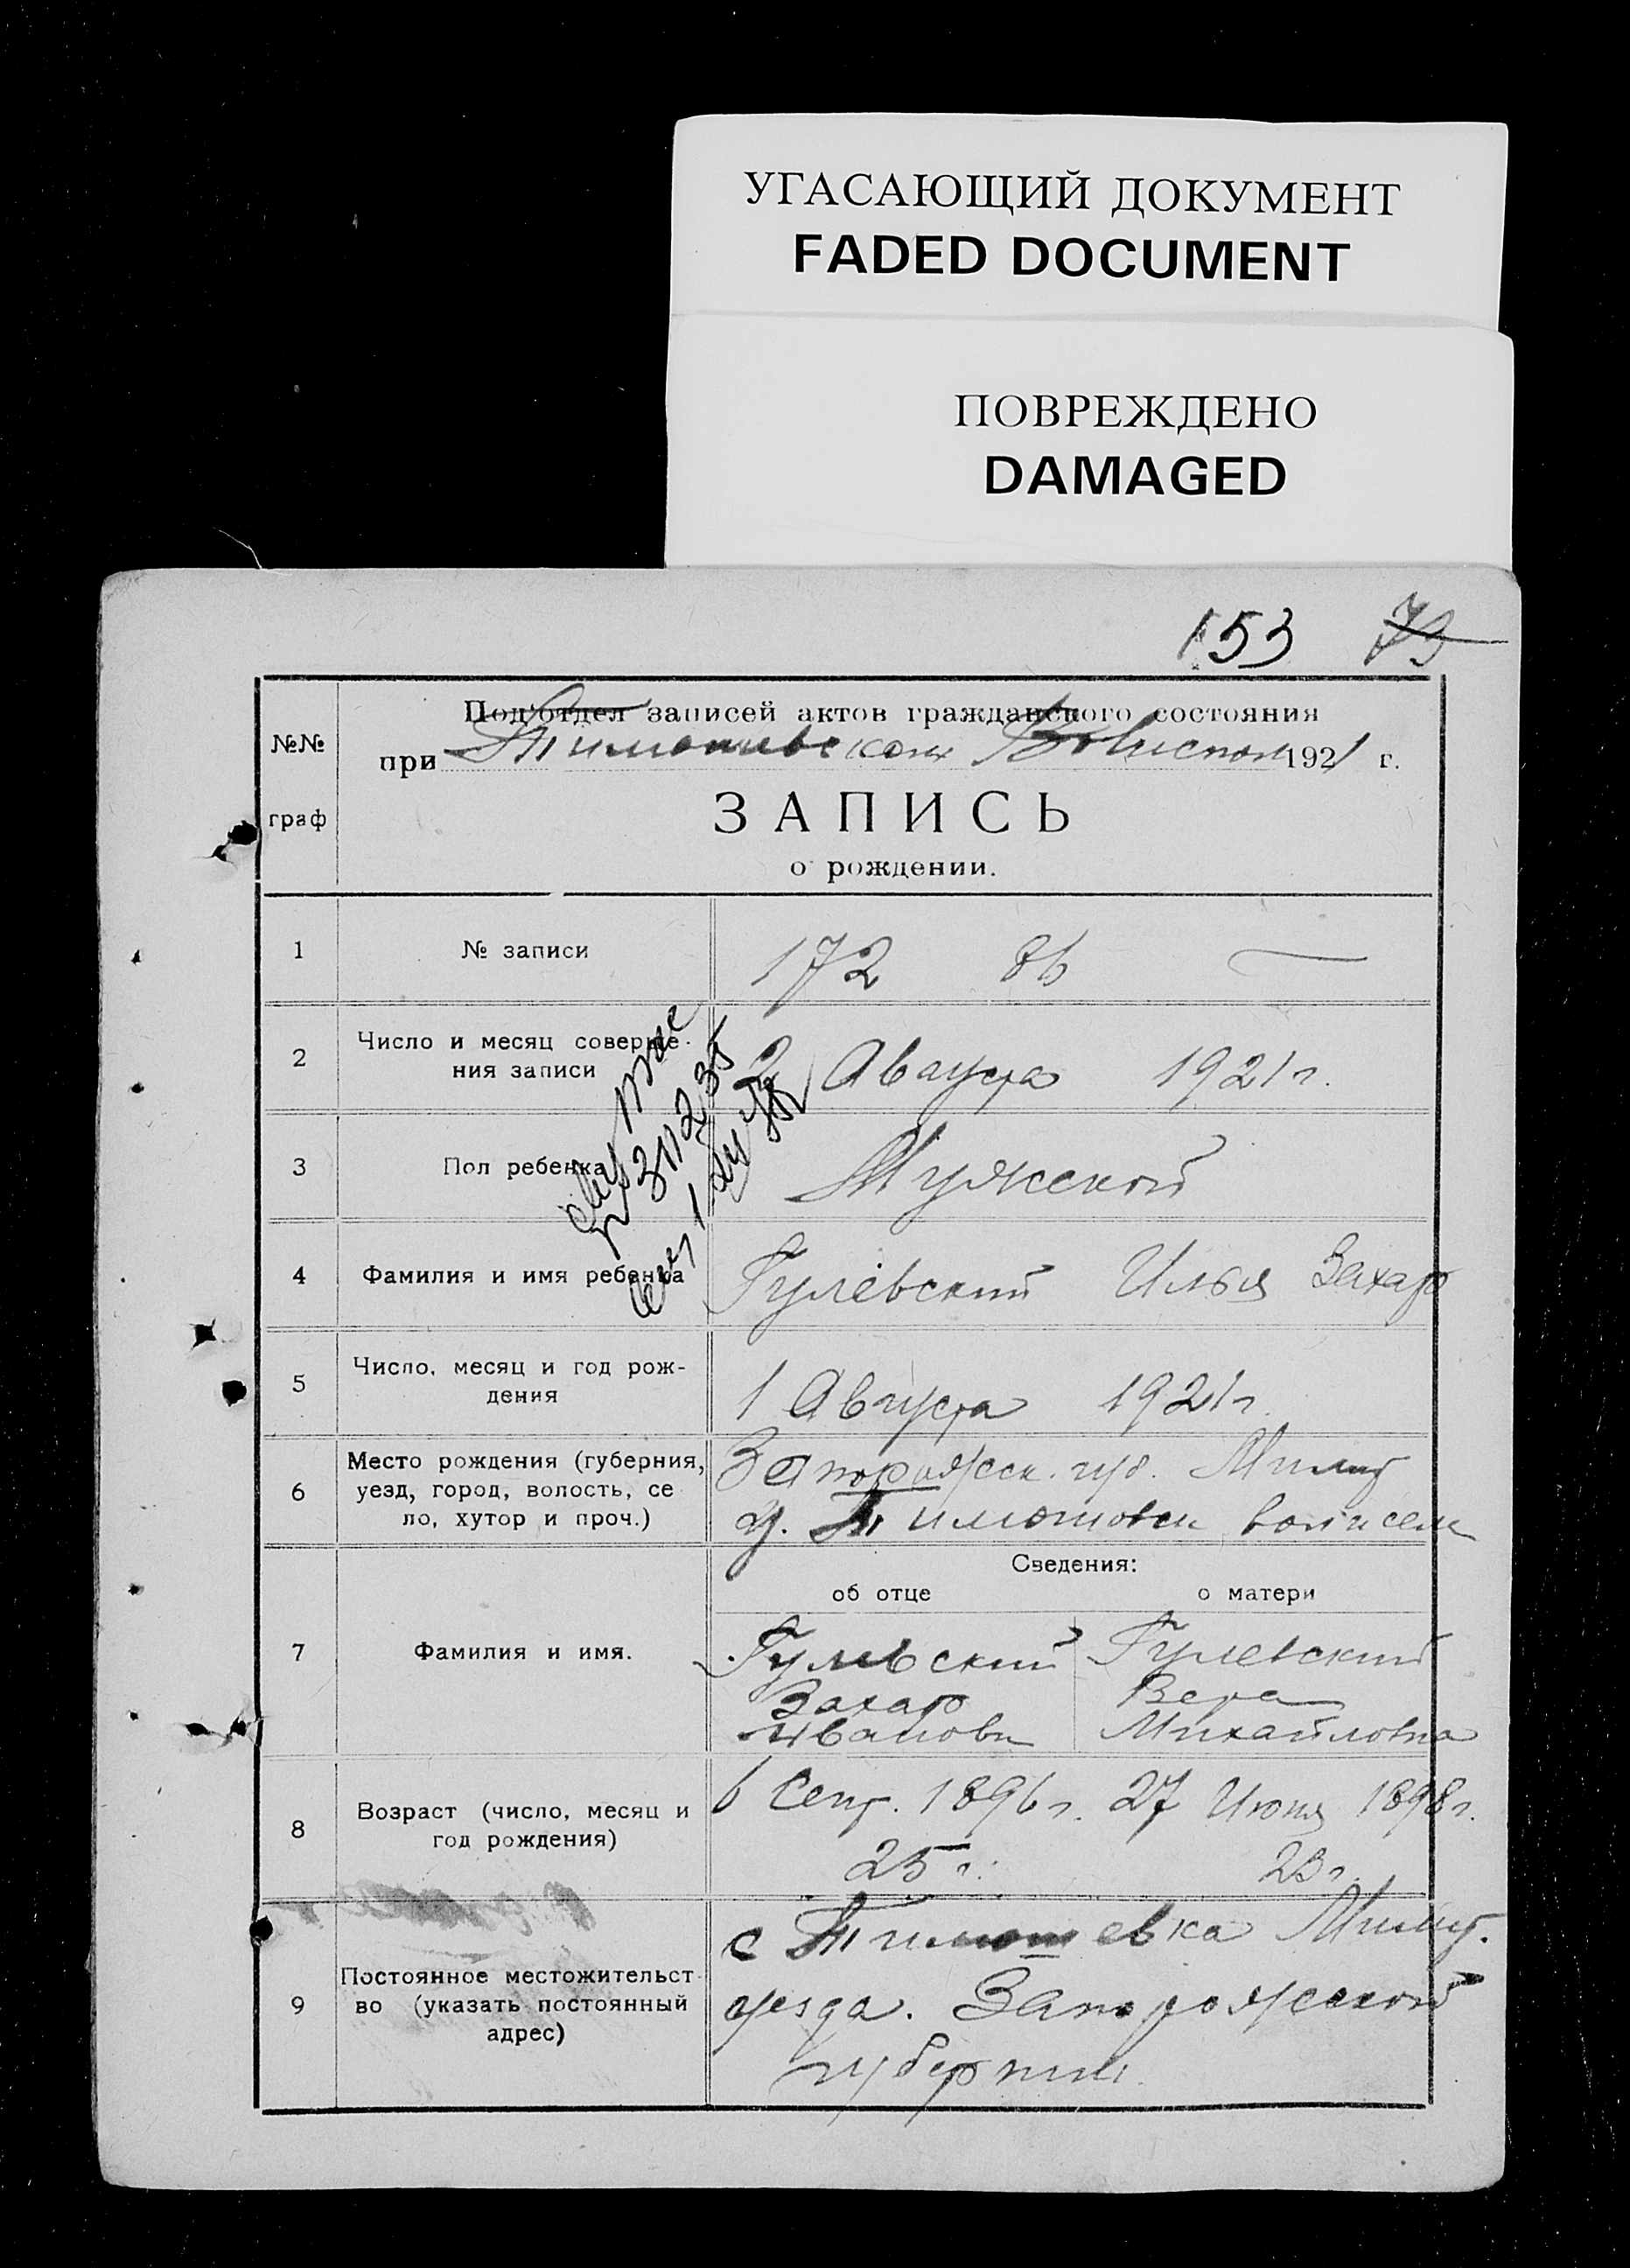 УГАСАЮЩИЙ ДОКУМЕНТ
FADED DOCUMENT
ПОВРЕЖДЕНО
DAMAGED
153 73
№№ граф
Под'отдел записей актов гражданского состояния
при Тимошевском Волиспол 1921 г.
ЗАПИСЬ
о рождении.
1 № записи 172
2 Число и месяц соверше-
ния записи 2 Августа 1921 г.
3 Пол ребенка Мужской
4 Фамилия и имя ребенка Гулевский Илья Захар
5 Число, месяц и год рож-
дения 1 Августа 1921 г.
6 Место рождения (губерния, Запорожск. губ. Мелит
уезд, город, волость, се
ло, хутор и проч.) у. Тимошовск вол и села
Сведения:
об отце о матери
7 Фамилия и имя. Гулевский Гулевский
Захар Вера
Иванови Михайловна
8 Возраст (число, месяц и 6 Сент. 1896 г. 27 Июня 1898 г.
год рождения) 25 г. 23 г.
с Тимошевка Мелит.
9 Постоянное местожительст
во (указать постоянный уезда. Запорожской
адрес) губернии